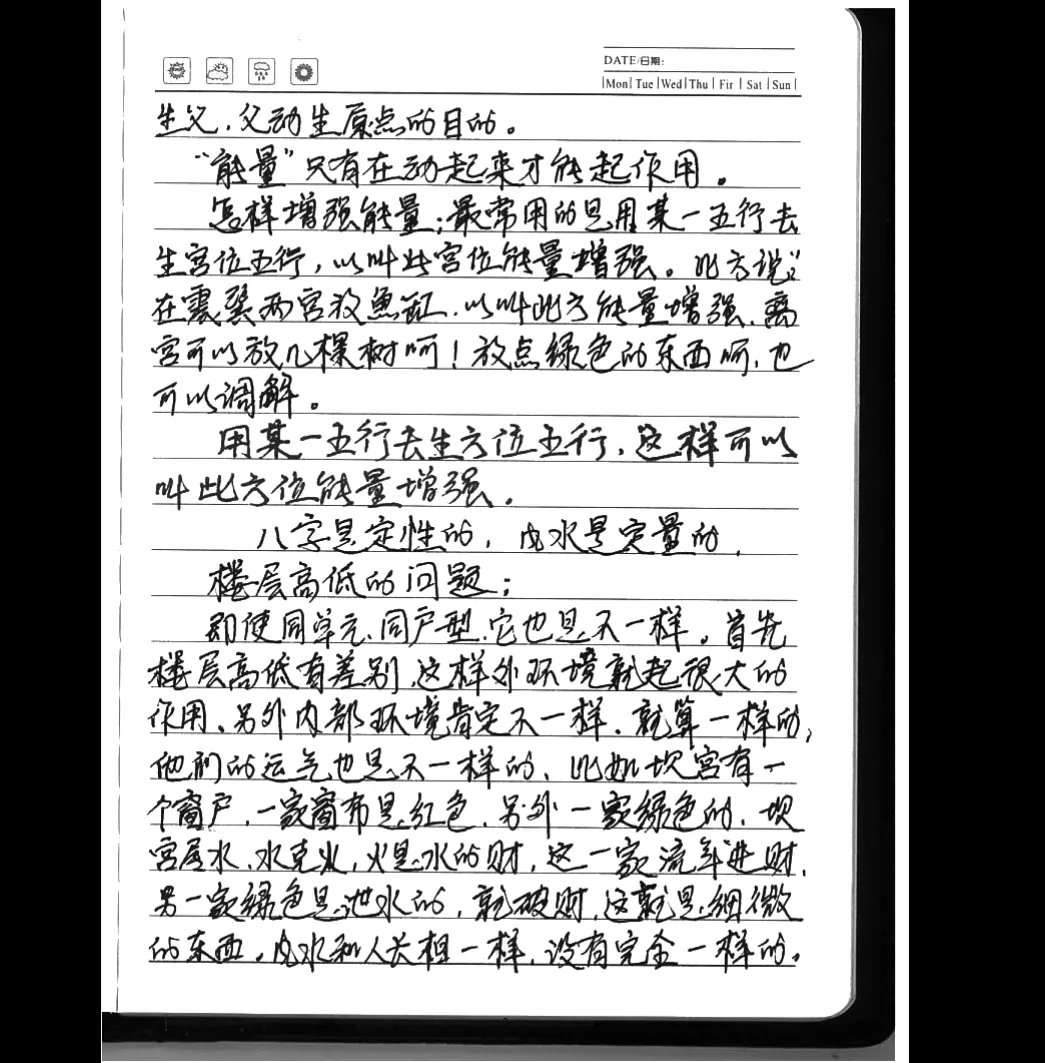 DATE/日期:
Mon Tue Wed Thu Fir Sat Sun
生父,父动生原点的目的。
“能量”只有在动起来才能起作用。
怎样增强能量;最常用的是用某一五行去
生宫位五行,以叫此宫位能量增强。比方说:
在震巽两宫放鱼缸,以叫此方能量增强,离
宫可以放几棵树呵!放点绿色的东西呵,也
可以调解。
用某一五行去生方位五行,这样可以
叫此方位能量增强。
八字是定性的,风水是定量的,
楼层高低的问题;
即使同单元、同户型,它也是不一样。首先
楼层高低有差别,这样外环境就起很大的
作用、另外内部环境肯定不一样,就算一样的,
他们的运气也是不一样的、比如坎宫有一
个窗户,一家窗布是红色,另外一家绿色的,坎
宫属水,水克火,火是水的财,这一家流年进财,
另一家绿色是泄水的,就破财,这就是细微
的东西。风水和人长相一样,没有完全一样的。